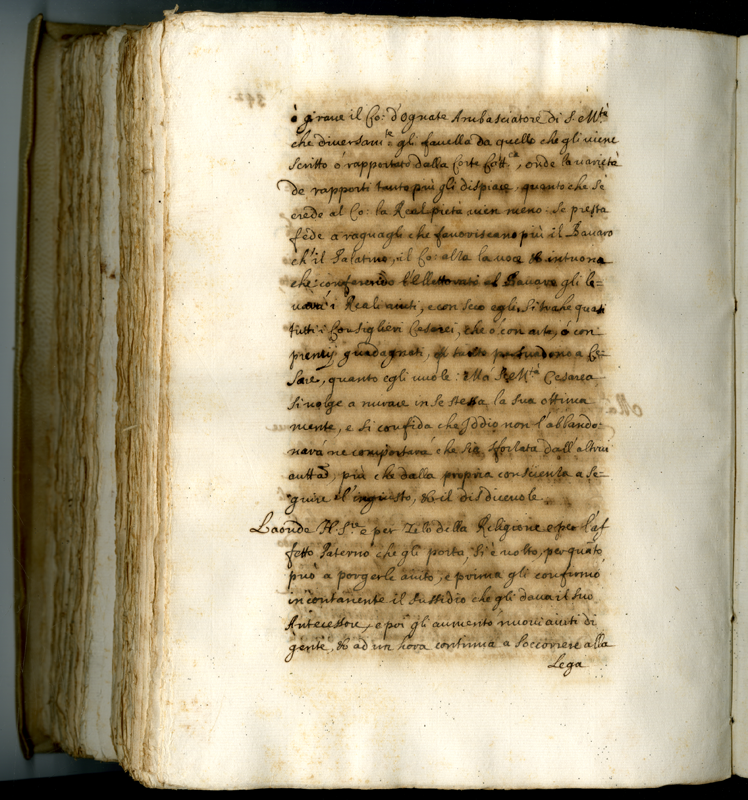 ò girare il Co: d'Ognate Ambasciatore di S. M.tà
che diversam.te gli favella da quello che gli viene
scritto ò rapportato dalla Corte Catt.ca, onde la varietà
de rapporti tanto più gli dispiace, quanto che se
crede al Co: la Real pietà vien meno: Se presta
fede a raguagli che favoriscano più il Bavaro
ch'il Palatino, il Co: alza la voce et intuona
che conferendo l'Elettorato al Bavaro gli le-
varà i Reali aiuti, e con seco egli si trahe quasi
tutti i Consiglieri Cesarei, che ò con arte, ò con
premij guadagnati, persuadono a Ce-
sare, quanto egli vuole: Mà S. M.tà Cesarea
si volge a mirare in se stessa la sua ottima
mente, e si confida che Iddio non l'abbando-
narà ne comportarà che sia sforzata dall'altrui
autt.à, più che dalla propria conscienza a se-
guire l'ingiusto, et il disdicevole.
Laonde N. S.re e per Zelo della Religione e per l'af-
fetto Paterno che gli porta, si è volto, per quãto
può a porgerle aiuto, e prima gli confirmò
incontanente il sussidio che gli dava il suo
Antecessore, e poi gli aumento nuovi aiuti di
gente, et ad un hora continua a soccorrere alla
Lega